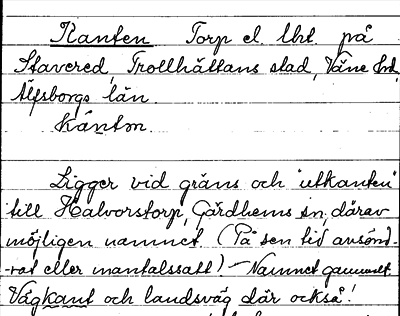 Kanten Torp el. lht. på
Stavered, Trollhättans stad, Väne hd,
Älfsborgs län.
Kántn.
Ligger vid gräns och "utkanten"
till Halvorstorp, Gärdhems sn, därav
möjligen namnet. (På sen tid avsönd-
-rat eller mantalssatt) – Namnet gammalt.
Vägkant och landsväg där också!